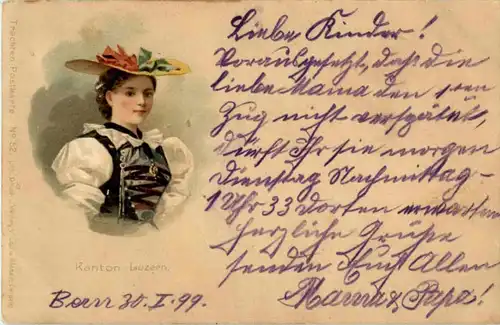 Liebe Kinder!
Vorausgesetzt, daß die
liebe Mama den 1ten
Zug nicht verspätet,
dürft Ihr sie morgen
Dienstag Nachmittag –
1 Uhr 33 dorten erwarten
herzliche Grüße
senden Euch Allen
Mama & Papa!
Kanton Luzern.
Bern 30.I.99.
Trachten-Postkarte No 32